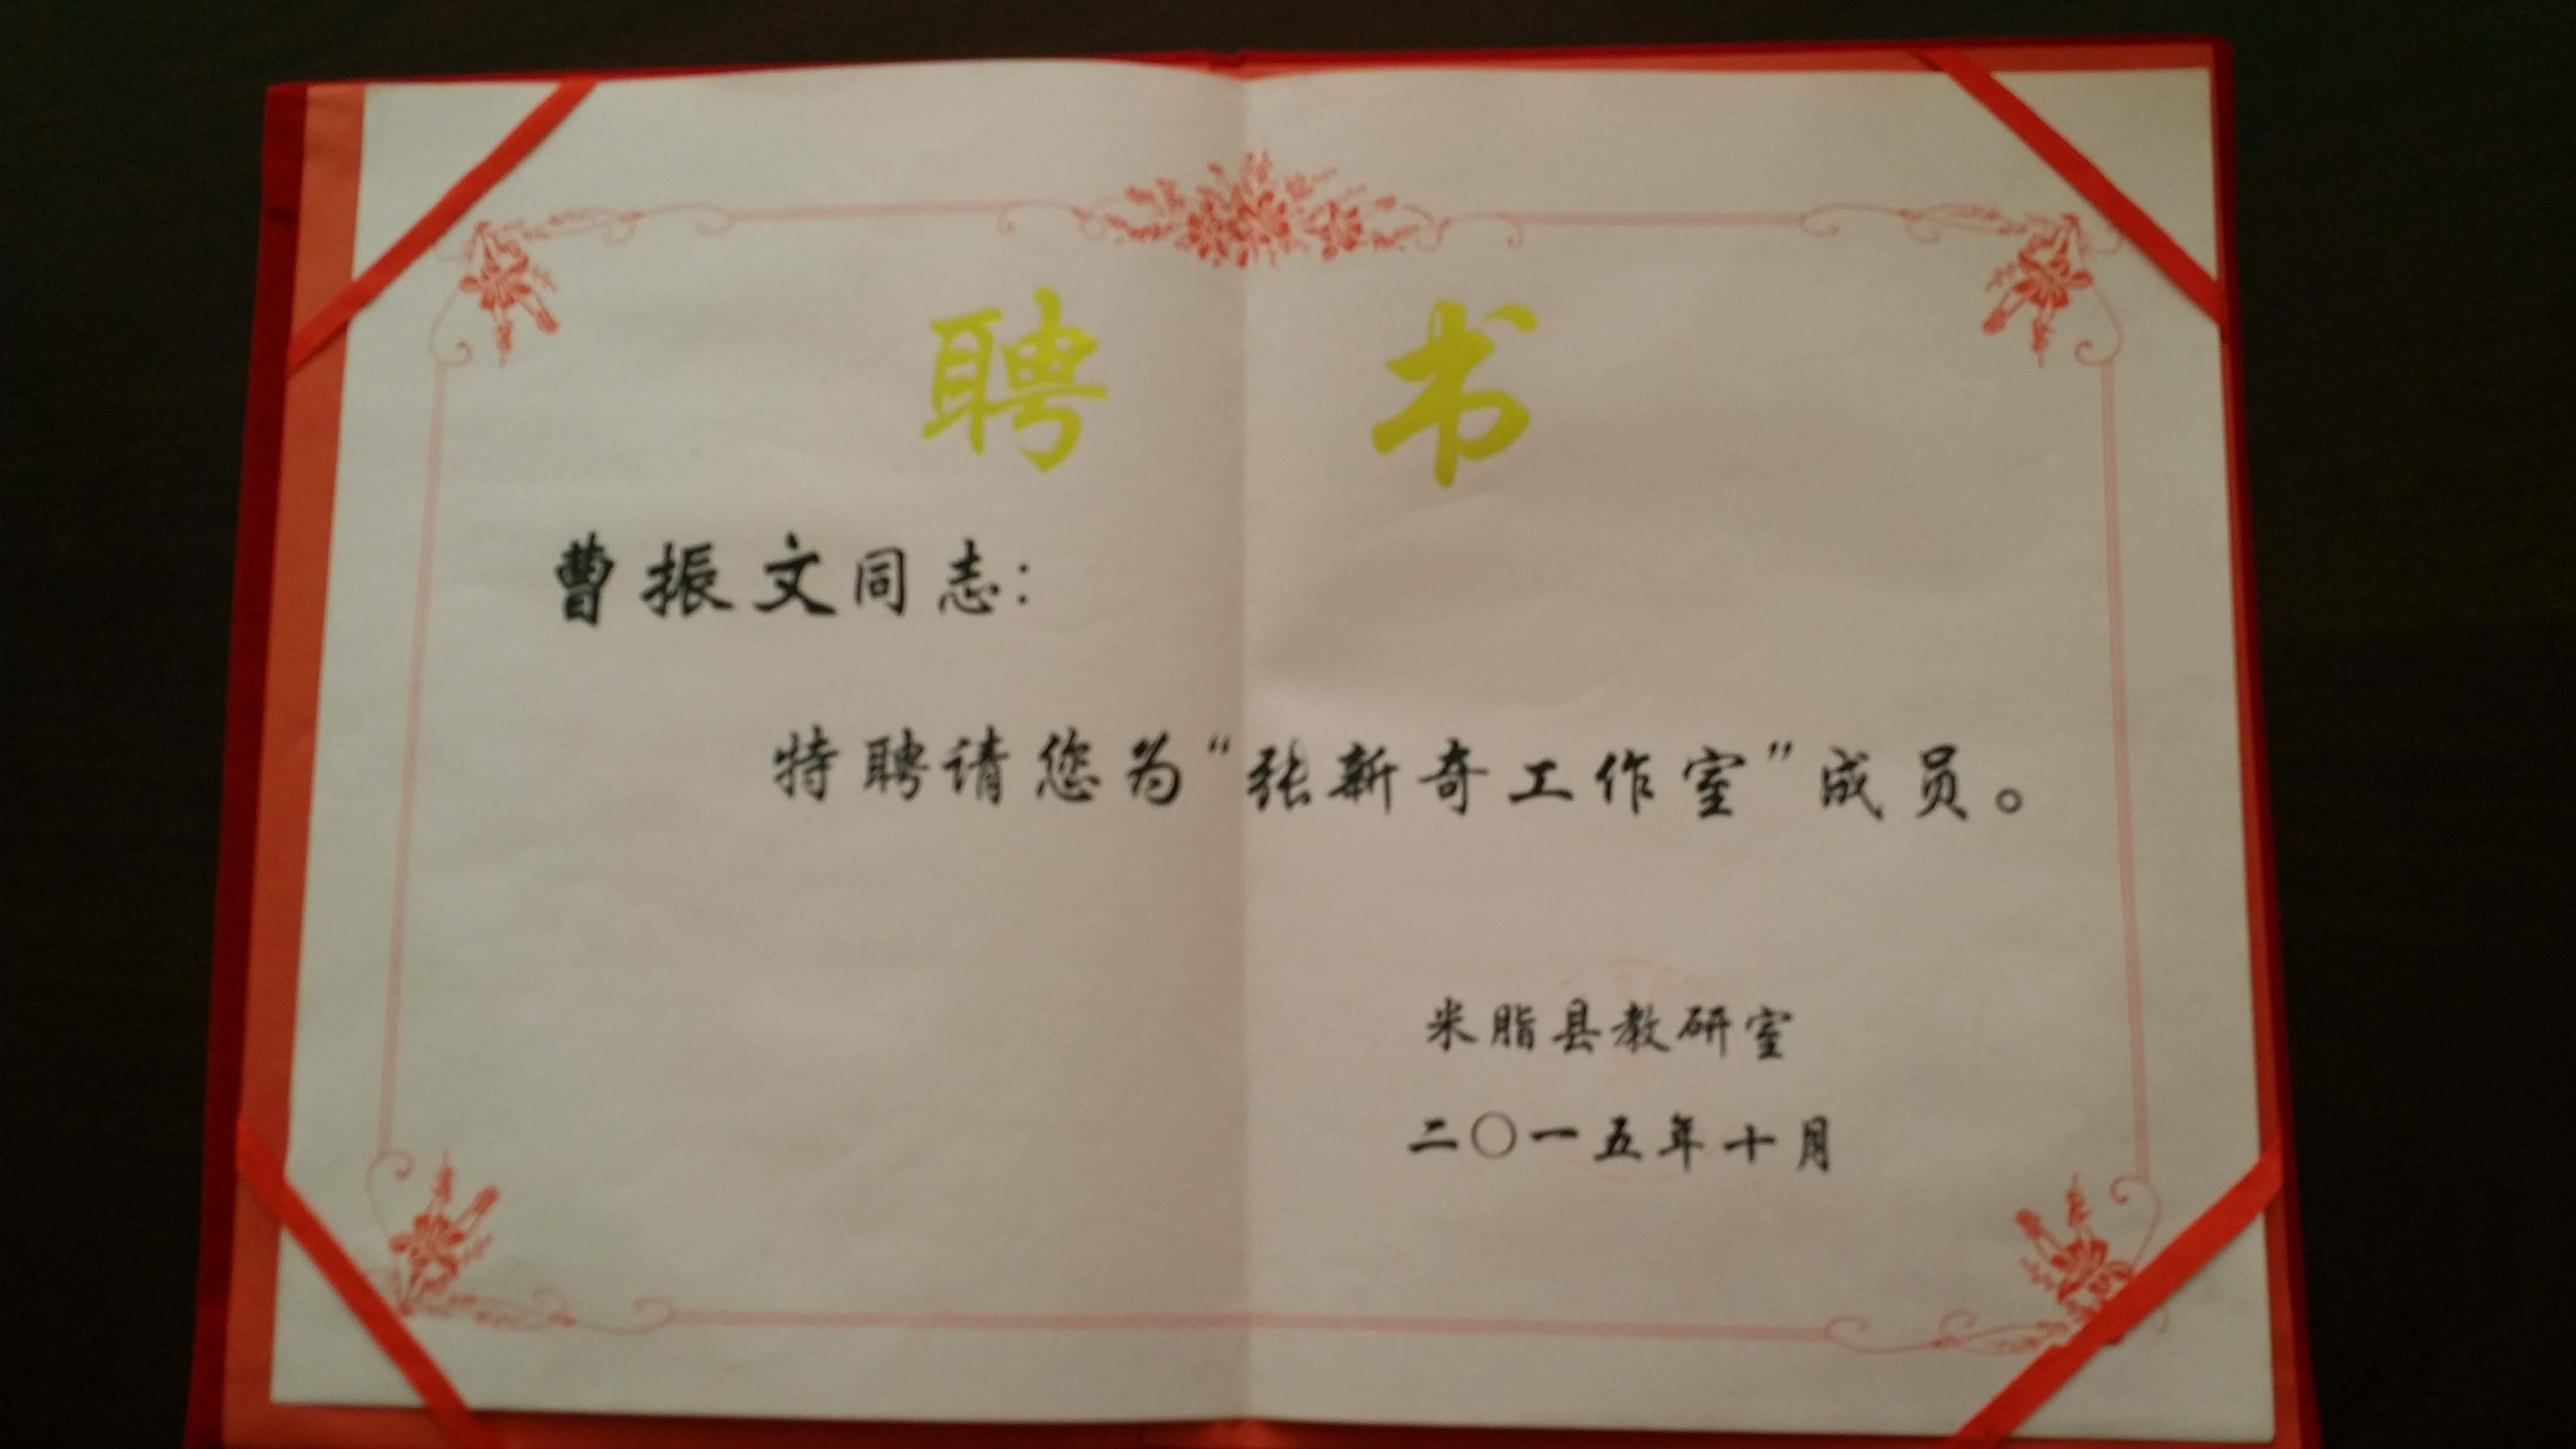 聘 书
曹振文同志：
特聘请您为“张新奇工作室”成员。
米脂县教研室
二〇一五年十月